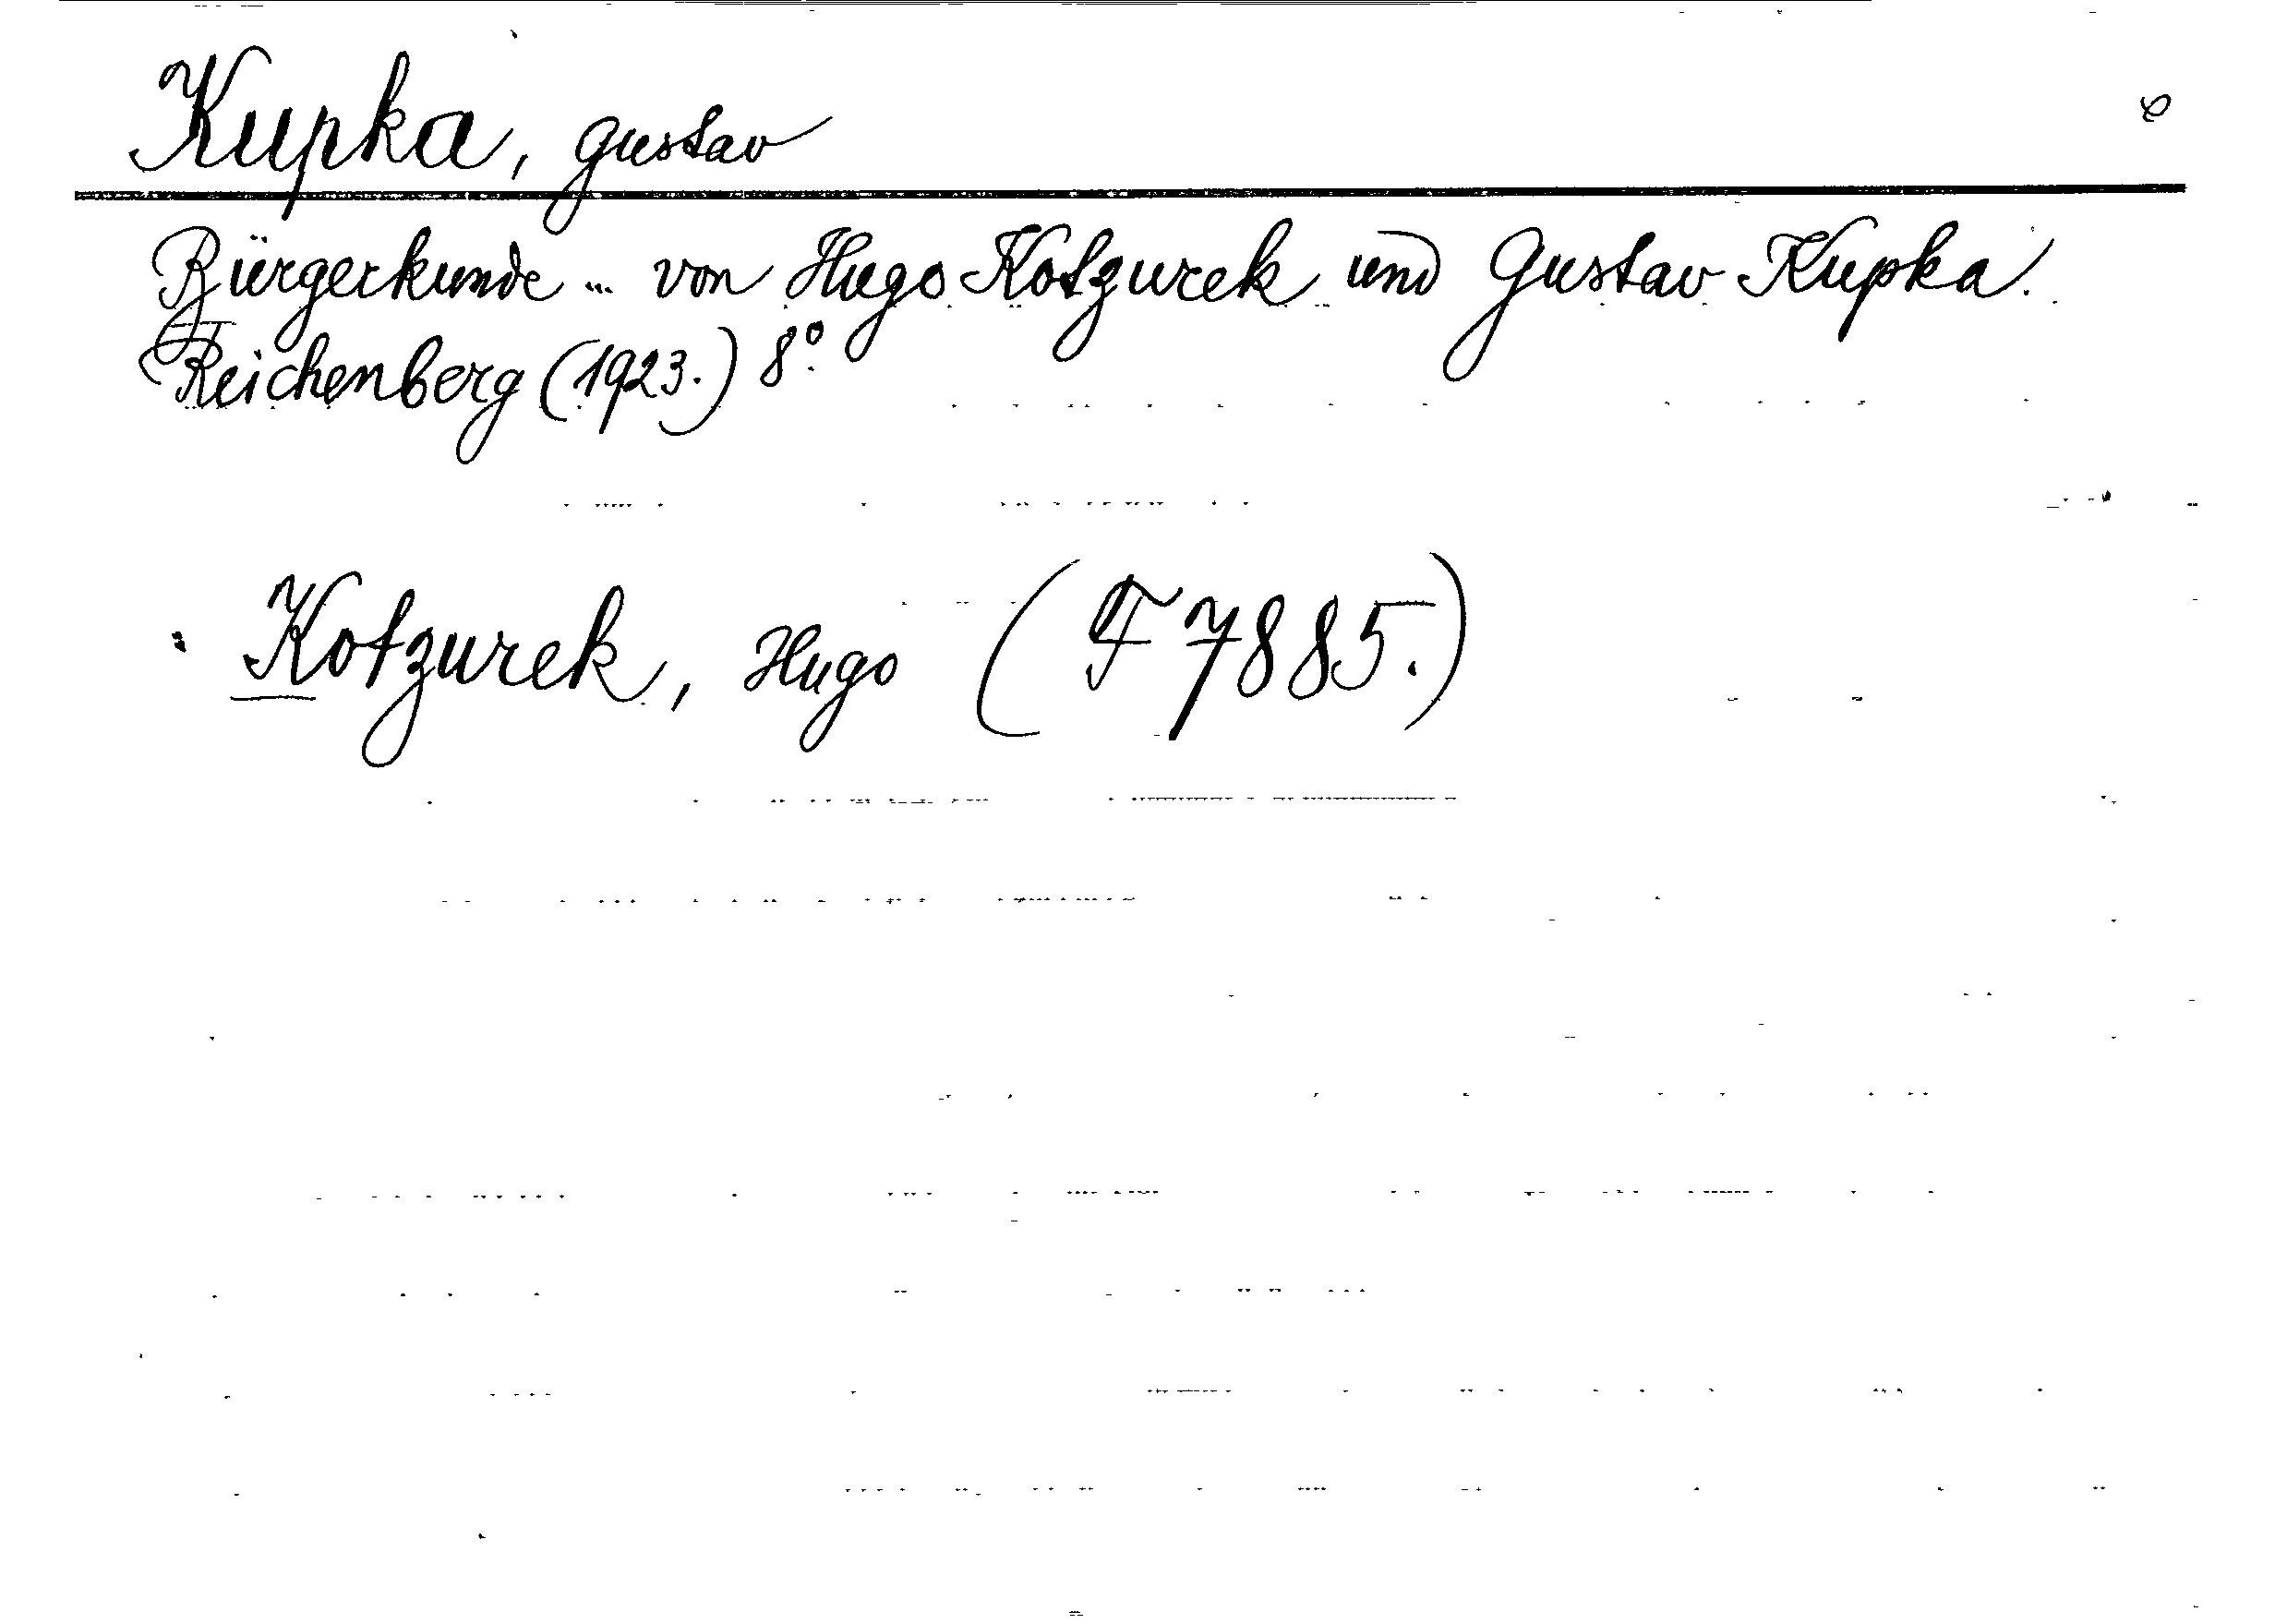 Kupka, Gustav
Bürgerkunde ... von Hugo Kotzurek und Gustav Kupka.
Reichenberg (1923.) 8º.
: Kotzurek, Hugo (F 7885.)